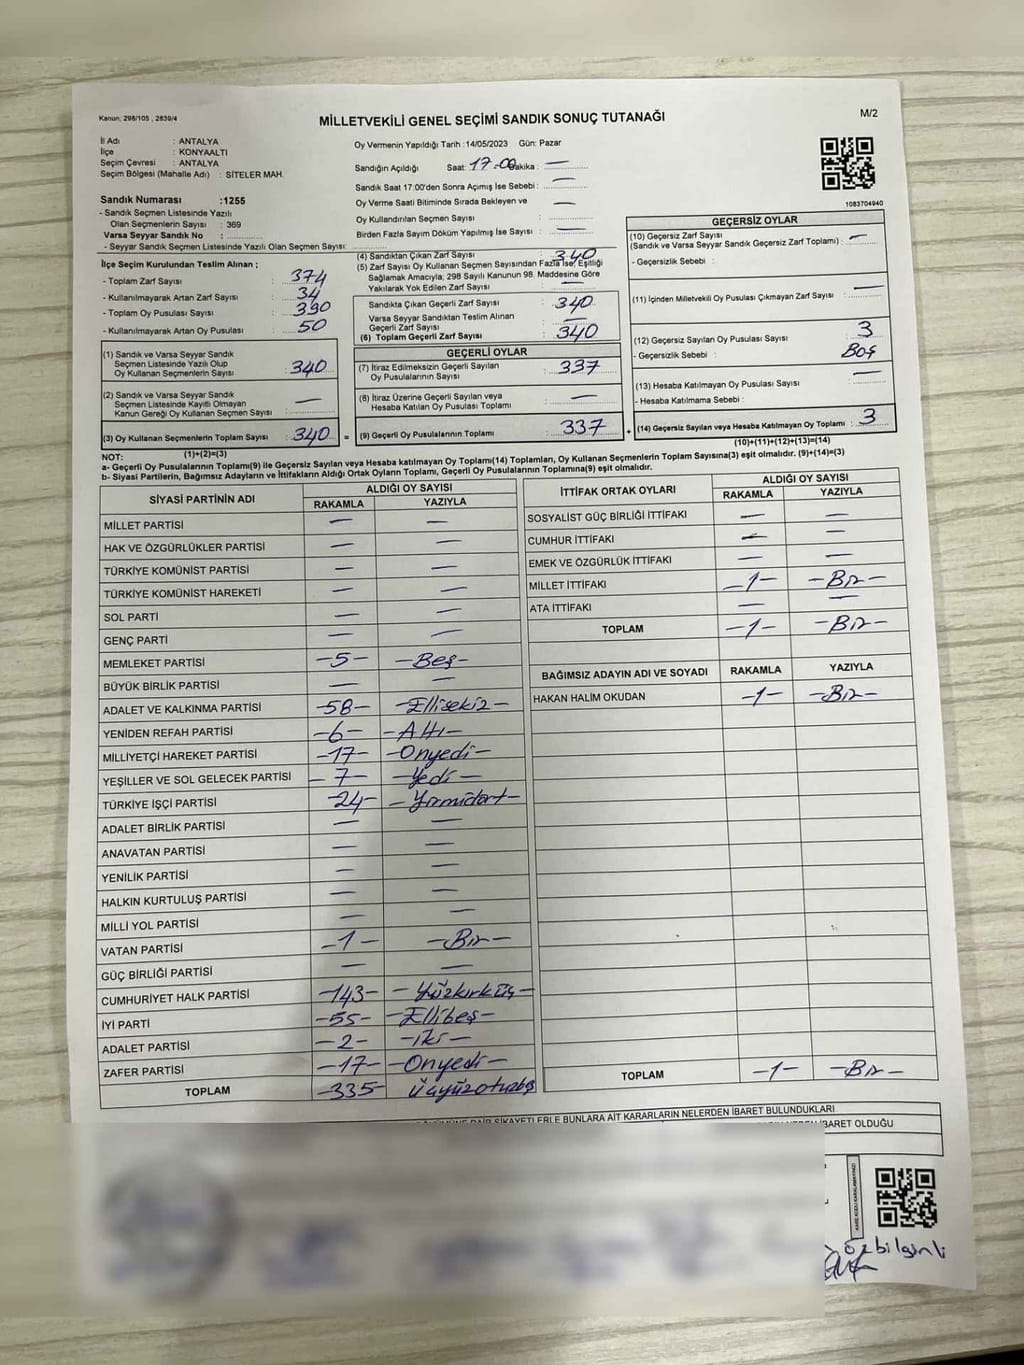 Kanun; 298/105 , 2839/4
MİLLETVEKİLİ GENEL SEÇİMİ SANDIK SONUÇ TUTANAĞI
M/2
İl Adı : ANTALYA
İlçe : KONYAALTI
Seçim Çevresi : ANTALYA
Seçim Bölgesi (Mahalle Adı) : SİTELER MAH.
Sandık Numarası :1255
- Sandık Seçmen Listesinde Yazılı
Olan Seçmenlerin Sayısı : 369
Varsa Seyyar Sandık No :
- Seyyar Sandık Seçmen Listesinde Yazılı Olan Seçmen Sayısı:
Oy Vermenin Yapıldığı Tarih :14/05/2023 Gün: Pazar
Sandığın Açıldığı Saat: 17-00 Dakika : —
Sandık Saat 17:00'den Sonra Açımış İse Sebebi : —
Oy Verme Saati Bitiminde Sırada Bekleyen ve
Oy Kullandırılan Seçmen Sayısı : —
Birden Fazla Sayım Döküm Yapılmış İse Sayısı : —
1083704940
İlçe Seçim Kurulundan Teslim Alınan ;
- Toplam Zarf Sayısı : 374
- Kullanılmayarak Artan Zarf Sayısı : 34
- Toplam Oy Pusulası Sayısı : 390
- Kullanılmayarak Artan Oy Pusulası : 50
(1) Sandık ve Varsa Seyyar Sandık
Seçmen Listesinde Yazılı Olup
Oy Kullanan Seçmenlerin Sayısı : 340
(2) Sandık ve Varsa Seyyar Sandık
Seçmen Listesinde Kayıtlı Olmayan
Kanun Gereği Oy Kullanan Seçmen Sayısı : —
(3) Oy Kullanan Seçmenlerin Toplam Sayısı : 340 =
(1)+(2)=(3)
(4) Sandıktan Çıkan Zarf Sayısı : 340
(5) Zarf Sayısı Oy Kullanan Seçmen Sayısından Fazla İse, Eşitliği
Sağlamak Amacıyla; 298 Sayılı Kanunun 98. Maddesine Göre
Yakılarak Yok Edilen Zarf Sayısı : —
Sandıkta Çıkan Geçerli Zarf Sayısı : 340
Varsa Seyyar Sandıktan Teslim Alınan
Geçerli Zarf Sayısı : —
(6) Toplam Geçerli Zarf Sayısı : 340
GEÇERLİ OYLAR
(7) İtiraz Edilmeksizin Geçerli Sayılan
Oy Pusulalarının Sayısı : 337
(8) İtiraz Üzerine Geçerli Sayılan veya
Hesaba Katılan Oy Pusulası Toplamı : —
(9) Geçerli Oy Pusulalarının Toplamı : 337 +
GEÇERSİZ OYLAR
(10) Geçersiz Zarf Sayısı
(Sandık ve Varsa Seyyar Sandık Geçersiz Zarf Toplamı) : —
- Geçersizlik Sebebi :
(11) İçinden Milletvekili Oy Pusulası Çıkmayan Zarf Sayısı : —
(12) Geçersiz Sayılan Oy Pusulası Sayısı : 3
- Geçersizlik Sebebi : Boş
(13) Hesaba Katılmayan Oy Pusulası Sayısı : —
- Hesaba Katılmama Sebebi :
(14) Geçersiz Sayılan veya Hesaba Katılmayan Oy Toplamı : 3
(10)+(11)+(12)+(13)=(14)
NOT:
a- Geçerli Oy Pusulasının Toplamı(9) ile Geçersiz Sayılan veya Hesaba katılmayan Oy Toplamı(14) Toplamları, Oy Kullanan Seçmenlerin Toplam Sayısına(3) eşit olmalıdır. (9)+(14)=(3)
b- Siyasi Partilerin, Bağımsız Adayların ve İttifakların Aldığı Oyların Toplamı, Geçerli Oy Pusulalarının Toplamına(9) eşit olmalıdır.
SİYASİ PARTİNİN ADI ALDIĞI OY SAYISI
RAKAMLA YAZIYLA
MİLLET PARTİSİ — —
HAK VE ÖZGÜRLÜKLER PARTİSİ — —
TÜRKİYE KOMÜNİST PARTİSİ — —
TÜRKİYE KOMÜNİST HAREKETİ — —
SOL PARTİ — —
GENÇ PARTİ — —
MEMLEKET PARTİSİ -5- -Beş-
BÜYÜK BİRLİK PARTİSİ — —
ADALET VE KALKINMA PARTİSİ -58- -Ellisekiz-
YENİDEN REFAH PARTİSİ -6- -Altı-
MİLLİYETÇİ HAREKET PARTİSİ -17- -Onyedi-
YEŞİLLER VE SOL GELECEK PARTİSİ -7- -Yedi-
TÜRKİYE İŞÇİ PARTİSİ -24- -Yirmidört-
ADALET BİRLİK PARTİSİ — —
ANAVATAN PARTİSİ — —
YENİLİK PARTİSİ — —
HALKIN KURTULUŞ PARTİSİ — —
MİLLİ YOL PARTİSİ — —
VATAN PARTİSİ -1- -Bir-
GÜÇ BİRLİĞİ PARTİSİ — —
CUMHURİYET HALK PARTİSİ -143- -Yüzkırküç-
İYİ PARTİ -55- -Ellibeş-
ADALET PARTİSİ -2- -iki-
ZAFER PARTİSİ -17- -Onyedi-
TOPLAM -335- Üçyüzotuzbeş
İTTİFAK ORTAK OYLARI ALDIĞI OY SAYISI
RAKAMLA YAZIYLA
SOSYALİST GÜÇ BİRLİĞİ İTTİFAKI — —
CUMHUR İTTİFAKI — —
EMEK VE ÖZGÜRLÜK İTTİFAKI — —
MİLLET İTTİFAKI -1- -Bir-
ATA İTTİFAKI — —
TOPLAM -1- -Bir-
BAĞIMSIZ ADAYIN ADI VE SOYADI RAKAMLA YAZIYLA
HAKAN HALİM OKUDAN -1- -Bir-
TOPLAM -1- -Bir-
ŞİKAYETLERLE BUNLARA AİT KARARLARIN NELERDEN İBARET BULUNDUKLARI
İBARET OLDUĞU
özbilginli